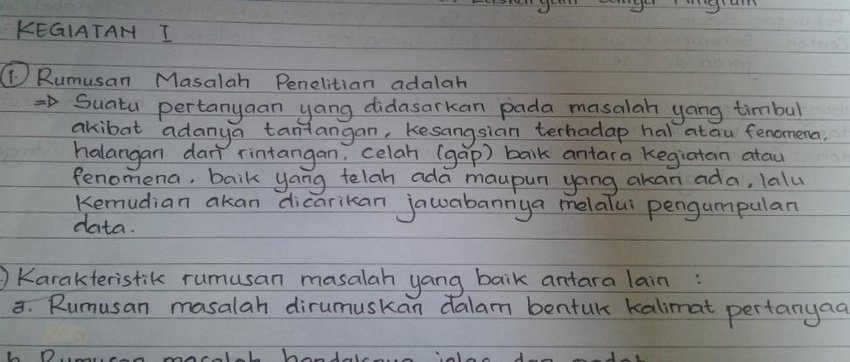 KEGIATAN I
1. Rumusan Masalah Penelitian adalah
=> Suatu pertanyaan yang didasarkan pada masalah yang timbul
akibat adanya tantangan, kesangsian terhadap hal atau fenomena,
halangan dari rintangan, celah (gap) baik antara kegiatan atau
fenomena, baik yang telah ada maupun yang akan ada, lalu
kemudian akan dicarikan jawabannya melalui pengumpulan
data.
) Karakteristik rumusan masalah yang baik antara lain :
a. Rumusan masalah dirumuskan dalam bentuk kalimat pertanyaa
b. Rumusan masalah hendaknya jelas dan padat